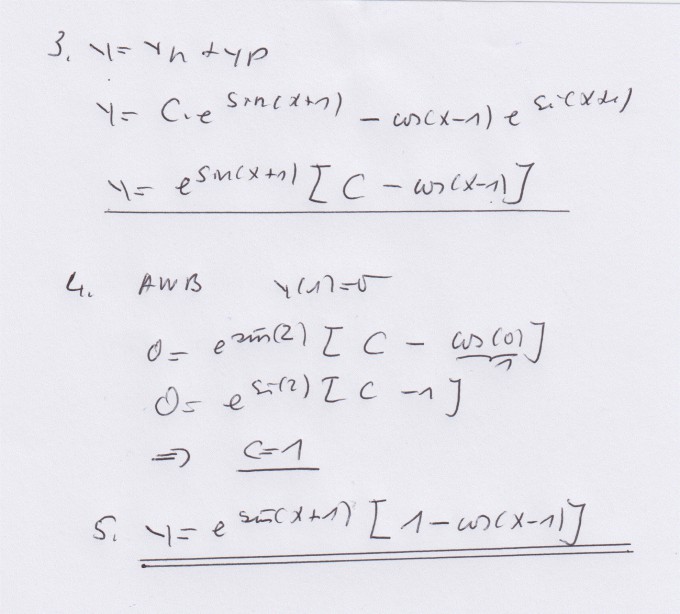 3. y = yh + yp
y = C · e^sin(x+1) − cos(x−1) e^sin(x+1)
y = e^sin(x+1) [ C − cos(x−1) ]
4. AWB y(1)=0
0 = e^sin(2) [ C − cos(0) ]
1
0 = e^sin(2) [ C − 1 ]
⇒ C=1
5. y = e^sin(x+1) [ 1 − cos(x−1) ]